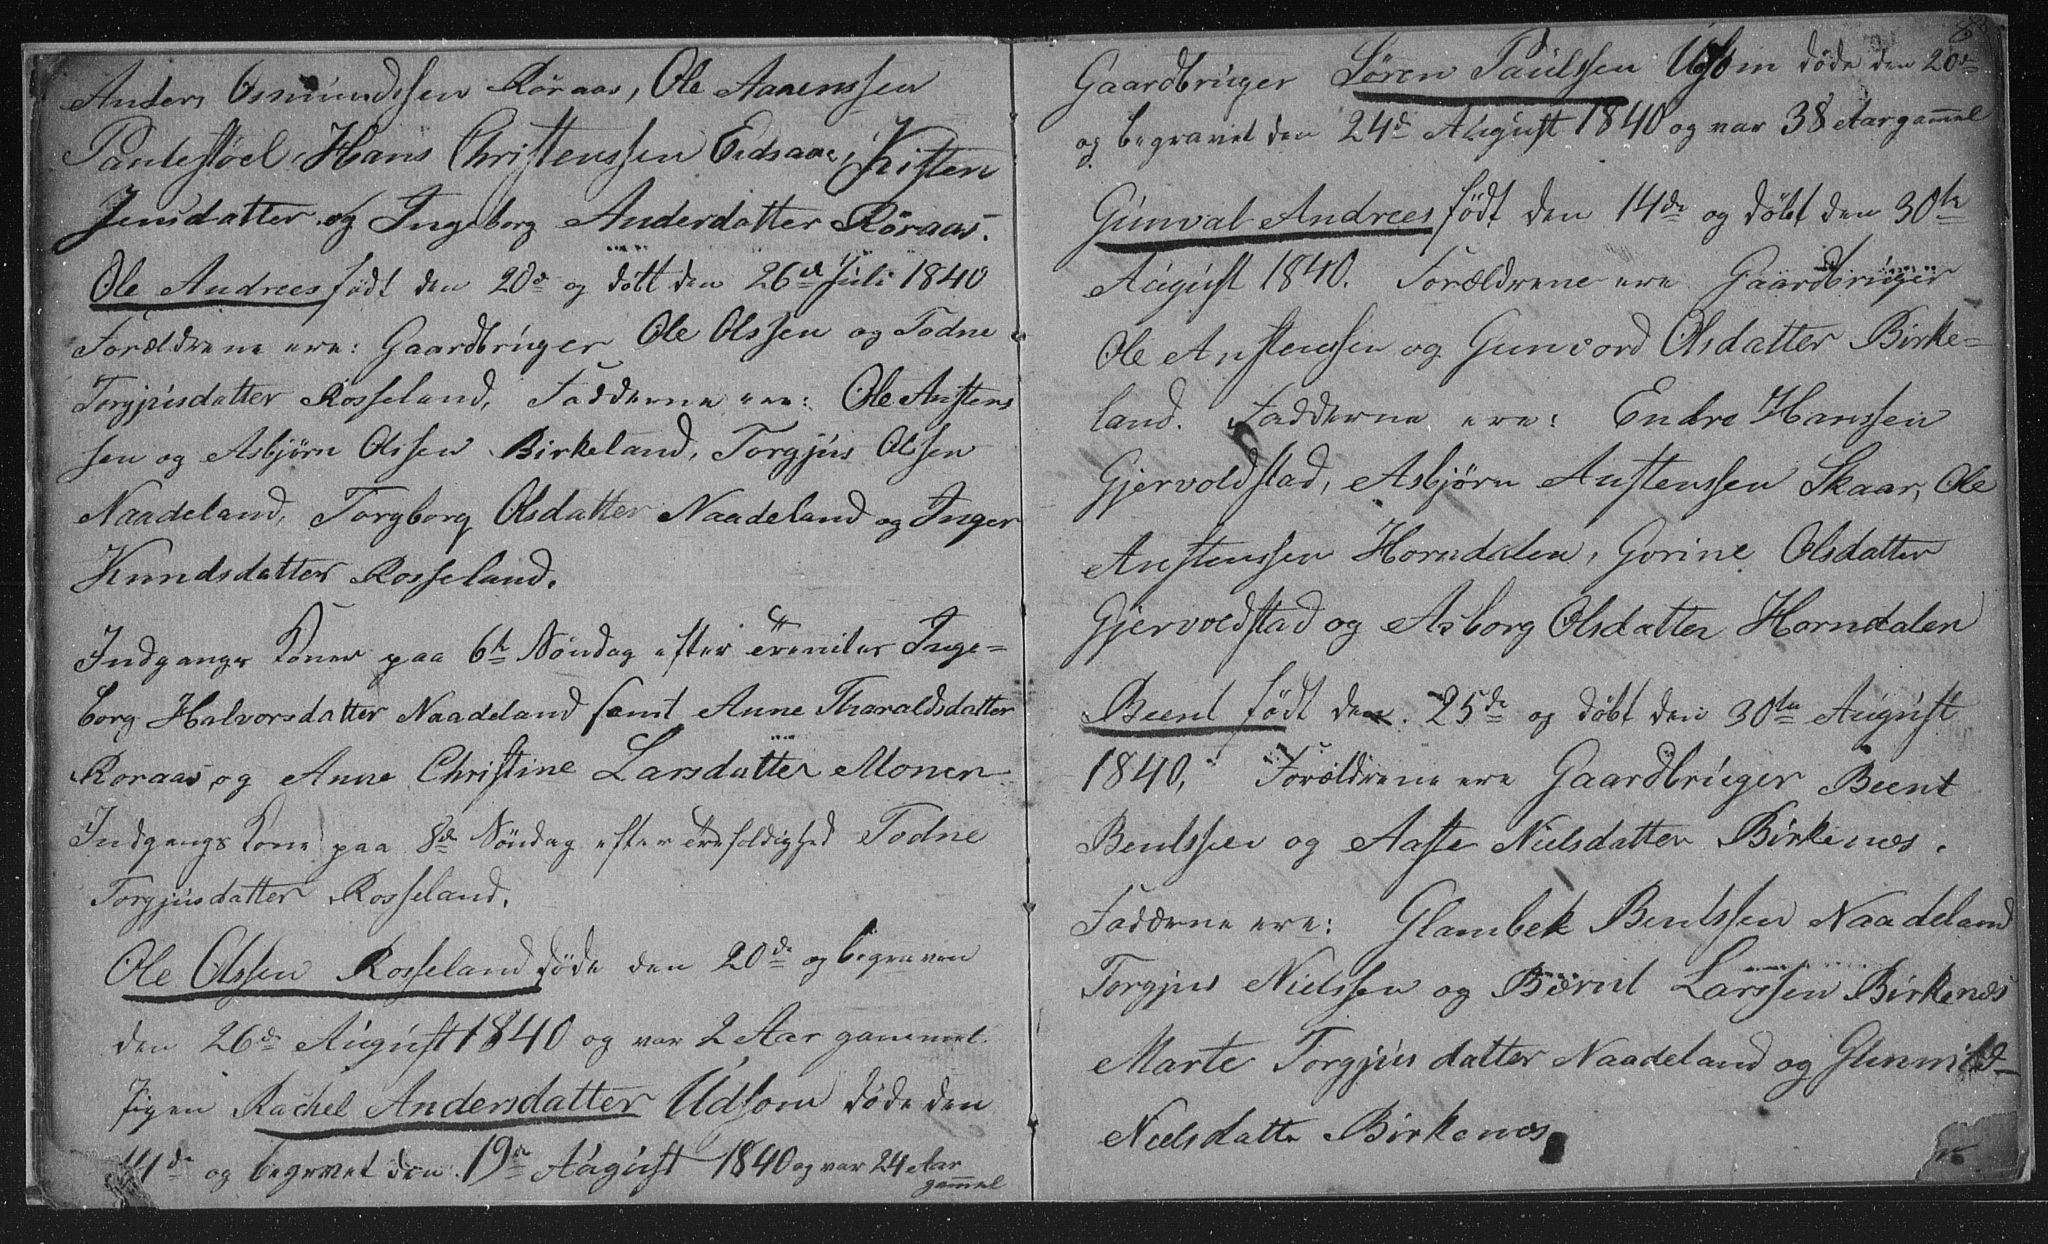 Anders Osmundssen Røraas, Ole Aanenssen
Pantestøel Hans Christenssen Eidsaae, Kisten
Jensdatter og Ingeborg Andersdatter Røraas.
Ole Andrees født den 20de og dött den 26de Juli 1840
Forældrene ere: Gaardbruger Ole Olssen og Todne
Torgjusdatter Rosseland, Fadderne ere: Ole Austens
sen og Asbjørn Olssen Birkeland, Torgjus Olsen
Naadeland, Torgborg Olsdatter Naadeland og Inger
Knudsdatter Rosseland.
Indgangs Koner paa 6te Söndag efter Trenites Inge=
borg Halvorsdatter Naadeland samt Anne Tharaldsdatter
Roraas, og Anne Christine Larsdatter Monen
Indgangs Kone paa 8de Söndag efter Trefoldighed Todne
Torgjusdatter Rosseland.
Ole Olssen Rosseland døde den 20de og begraven
den 26de August 1840 og var 2 Aar gammel.
Pigen Rachel Andersdatter Udsom døde den
14de og begravet den 19de August 1840 og var 24 Aar
gammel
Gaardbruger Søren Paulssen Udsom døde den 20de
og begravet den 24de August 1840 og var 38 Aar gammel
Gunval Andrees født den 14de og døbt den 30te
August 1840. Forældrene ere Gaardbruger
Ole Austenssen og Gunvord Olsdatter Birke=
land. Fadderne ere: Endre Hanssen
Gjervoldstad, Asbjørn Austenssen Skaar, Ole
Austenssen Horndalen, Gorine Olsdatter
Gjervoldstad og Asborg Olsdatter Horndalen
Beent født den 25de og døbt den 30te August
1840, Forældrene ere Gaardbruger Beent
Bentssen og Aaste Nielsdatter Birkenæs.
Fadderne ere: Glambek Bentssen Naadeland
Torgjus Nielssen og Bærnt Larssen Birkenæs
Marte Torgjus datter Naadeland og
Nielsdatter Birkenæs